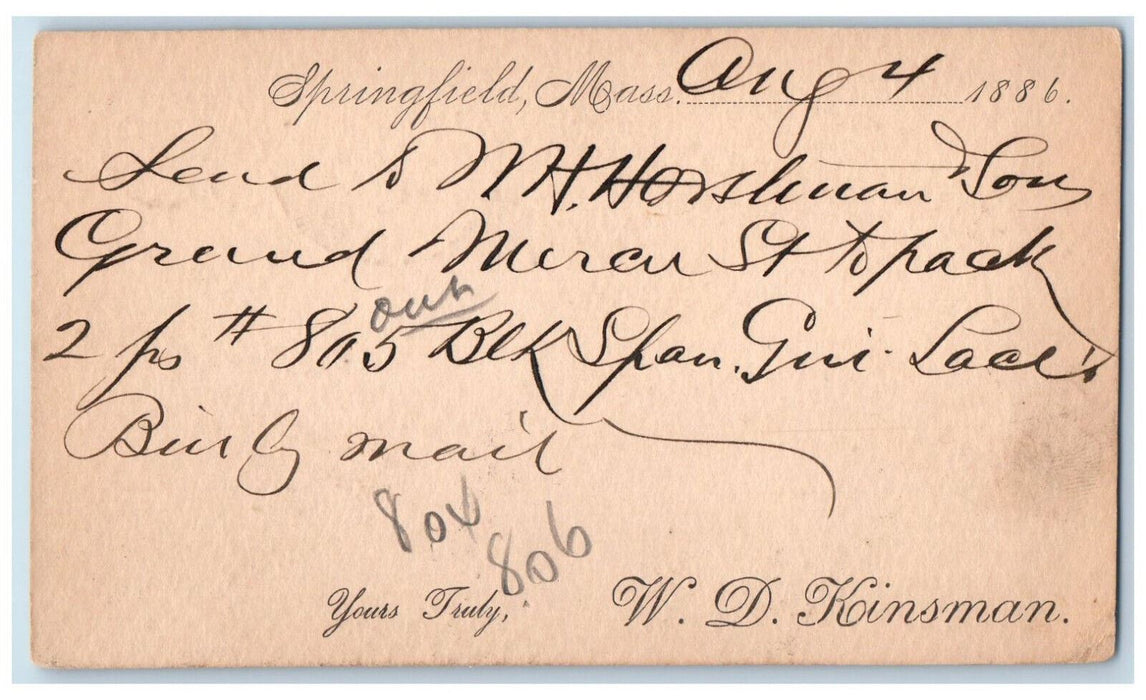 Springfield, Mass. Aug 4 1886.
Send to M H. Horshman & Son
Grand Mercer St to pack
out
2 ps # 805 Blk Span. Gui. Lace
Bill by mail
804
806
Yours Truly, W. D. Kinsman.